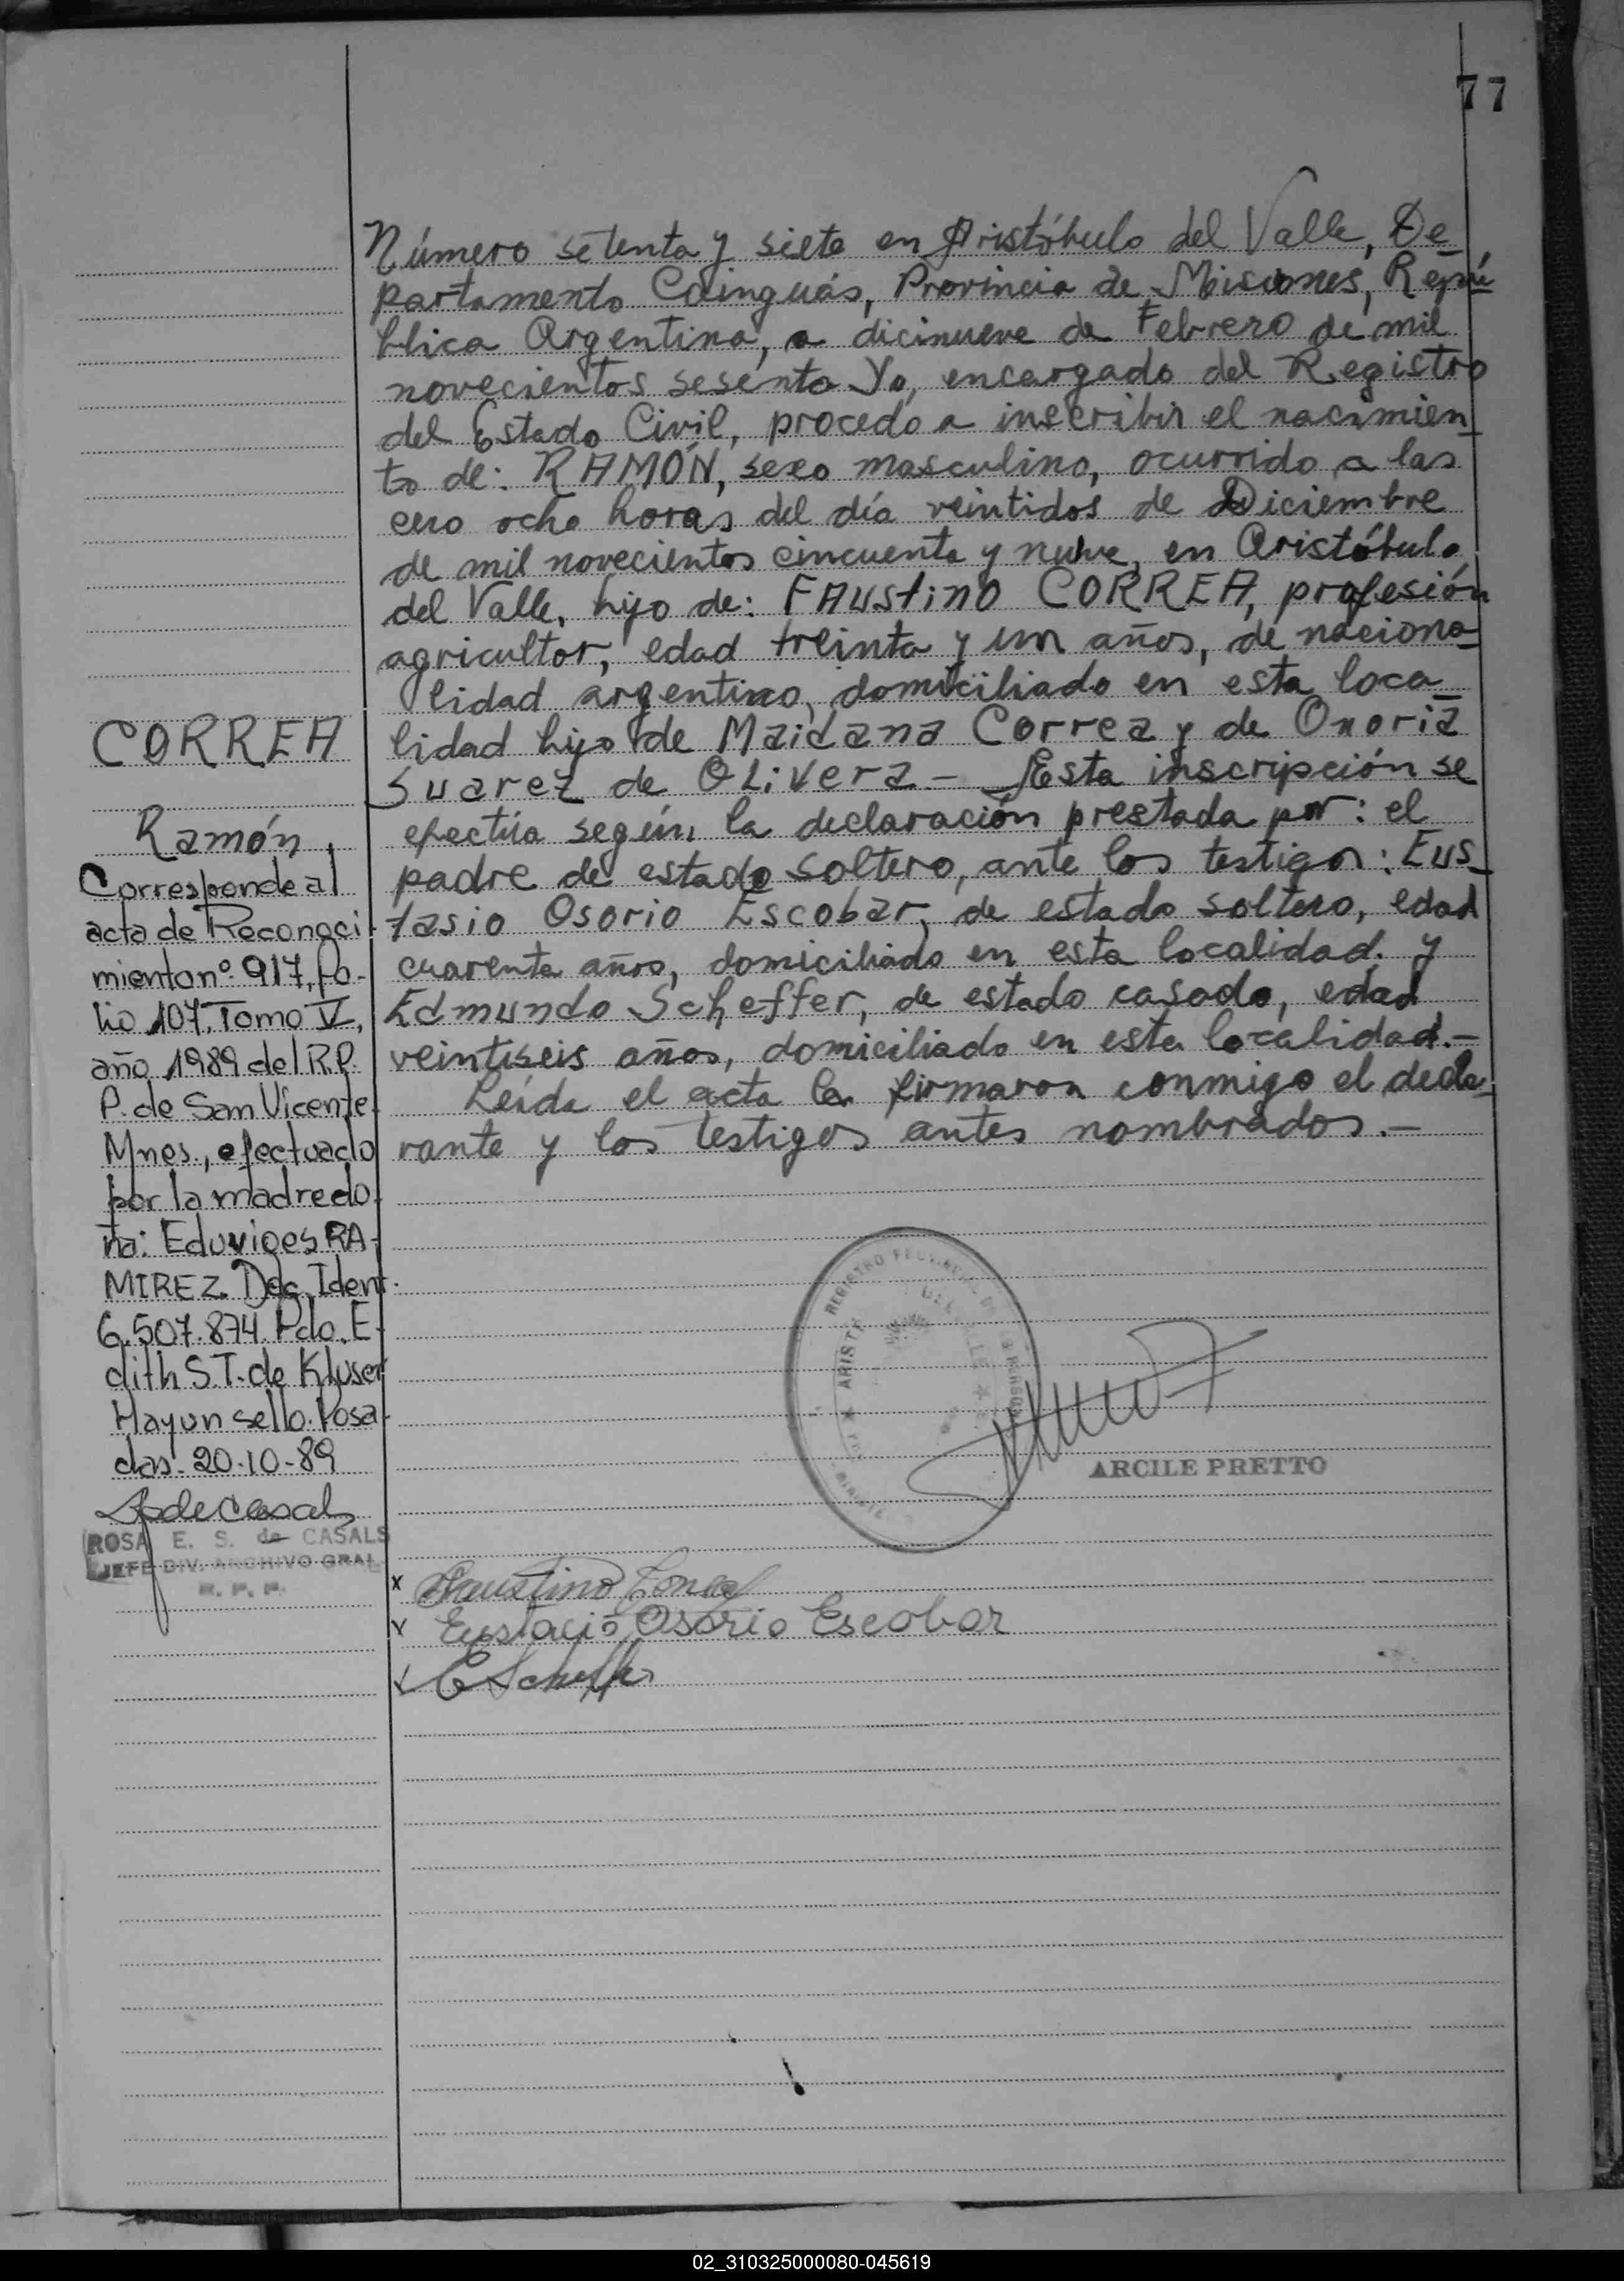 77
Número setenta y siete en Aristóbulo del Valle, De
partamento Cainguás, Provincia de Misiones, Repú
blica Argentina, a dicinueve de Febrero de mil
novecientos sesenta Yo, encargado del Registro
del Estado Civil, procedo a inscribir el nacimien
to de: RAMÓN, sexo masculino, ocurrido a las
cero ocho horas del día veintidos de Diciembre
de mil novecientos cincuenta y nueve, en Aristóbulo
del Valle, hijo de: FAUstino CORREA, profesión
agricultor, edad treinta y un años, de naciona
lidad argentino, domiciliado en esta loca
lidad hijo de Maidana Correa y de Onoria
Suarez de OLivera.- Esta inscripción se
efectúa según la declaración prestada por: el
padre de estado soltero, ante los testigos: Eus
tasio Osorio Escobar, de estado soltero, edad
cuarenta años, domiciliado en esta localidad. y
Edmundo Scheffer, de estado casado, edad
veintiseis años, domiciliado en esta localidad.-
Leída el acta la firmaron conmigo el decla
rante y los testigos antes nombrados.-
CORREA
Ramón
Corresponde al
acta de Reconoci-
miento nº 917, fo-
lio 107, Tomo V,
año 1989 del R.P.
P. de San Vicente
Mnes., efectuado
por la madre do-
ña: Eduviges RA-
MIREZ. Doc. Ident.
6.507.874. Pdo. E-
dith S.T. de Kluser
Hay un sello. Posa-
das. 20-10-89
ROSA E. S. de CASALS
JEFE DIV. ARCHIVO GRAL
R. P. P.
REGISTRO PROVINCIAL DE
ARIST DEL VALLE
ARCILE PRETTO
x Faustino Correa
Eustacio Osorio Escobar
E Scheffer
02_310325000080-045619